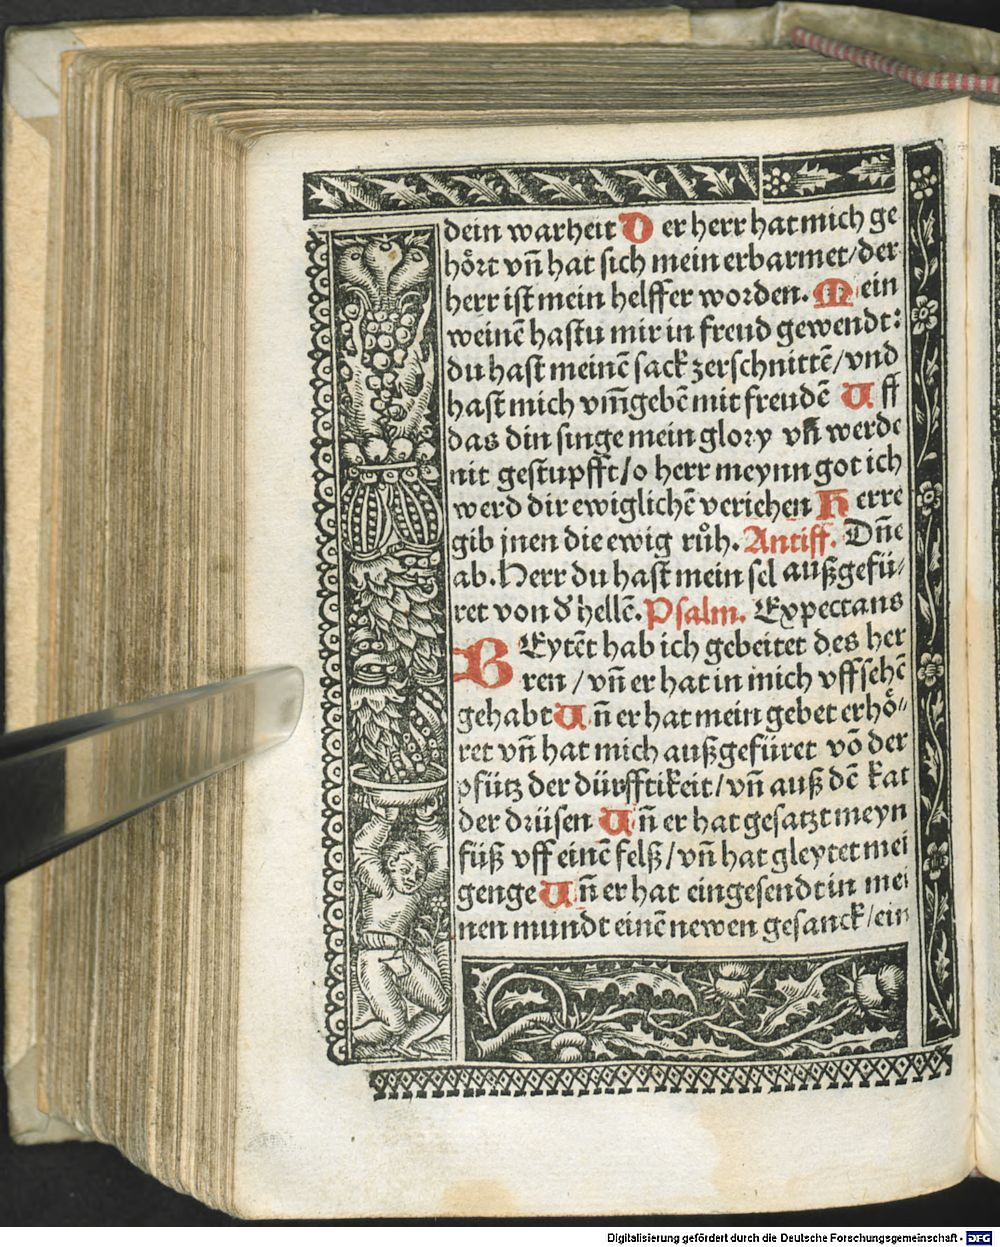 dein warheit Der herr hat mich ge
hoͤrt vn̄ hat sich mein erbarmet/der
herr ist mein helffer worden. Mein
weinē hastu mir in freud gewendt:
du hast meinē sack zerschnittē/vnd
hast mich vm̄gebē mit freudē Uff
das din singe mein glory vn̄ werde
nit gestupfft/o herr meynn got ich
werd dir ewiglichē veriehen Herre
gib jnen die ewig ruͦh. Antiff. Dn̄e
ab. Herr du hast mein sel außgefü⸗
ret von d̕ hellē. Psalm. Expectans
BEytēt hab ich gebeitet des her
ren / vn̄ er hat in mich vffsehē
gehabt Un̄ er hat mein gebet erhoͤ⸗
ret vn̄ hat mich außgefüret vō der
pfütz der dürfftikeit/vn̄ auß dē kat
der drüsen Un̄ er hat gesatzt meyn
füß vff einē felß/vn̄ hat gleytet mei
genge Un̄ er hat eingesendt in mei
nen mundt einē newen gesanck/ein
Digitalisierung gefördert durch die Deutsche Forschungsgemeinschaft - DFG